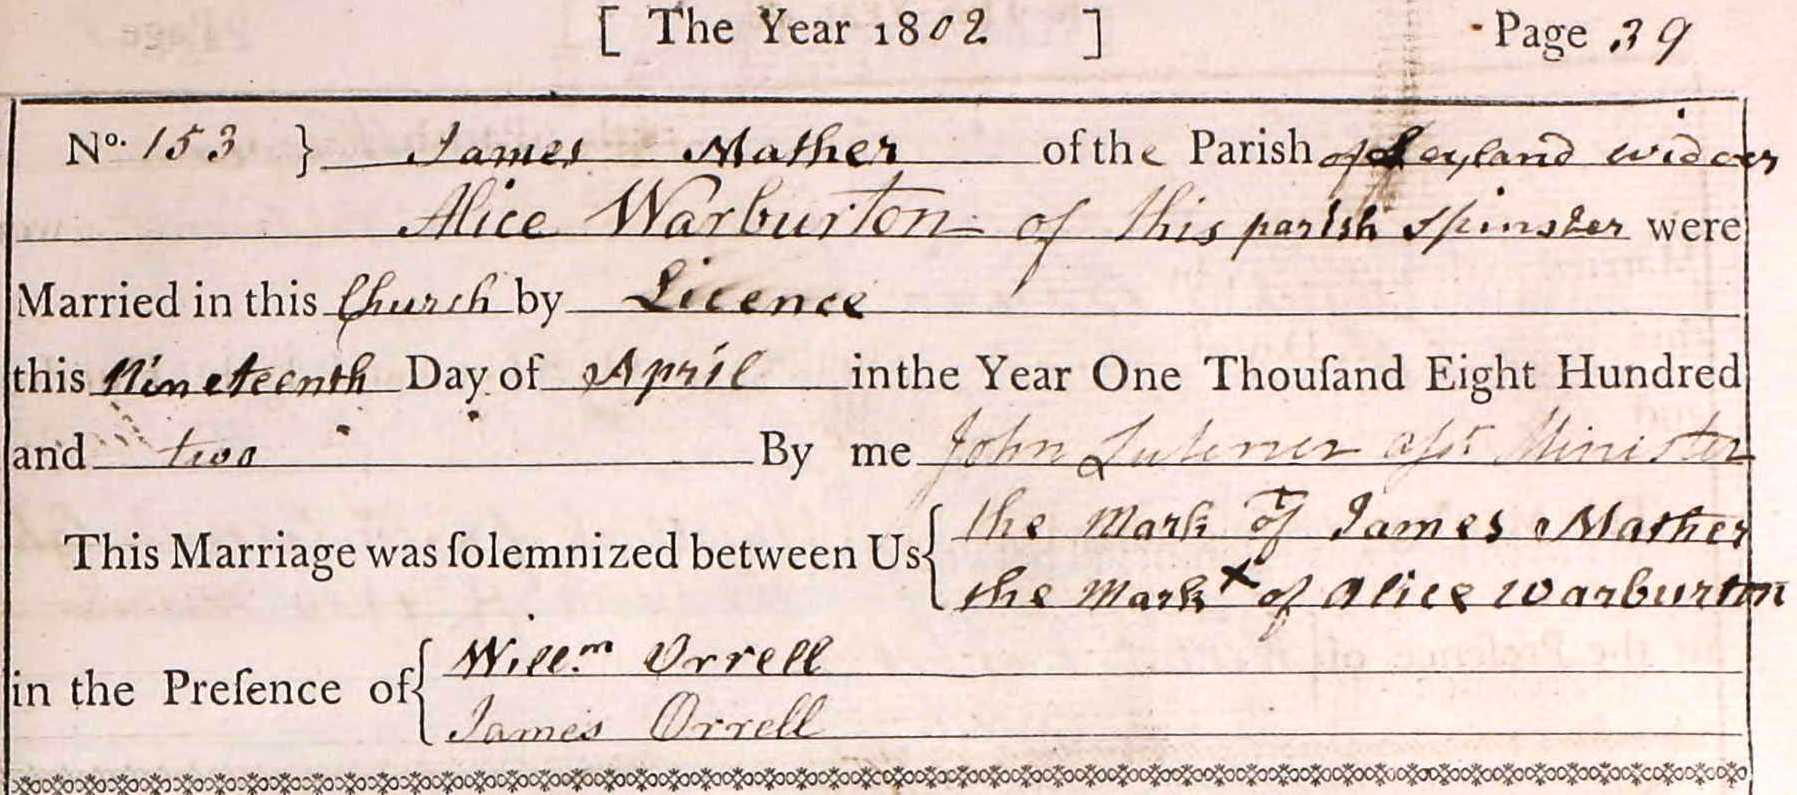 [ The Year 1802 ] Page 39
No. 153 } James Mather of the Parish of Leyland widower
Alice Warburton of this parish Spinster were
Married in this Church by Licence
this Nineteenth Day of April in the Year One Thouſand Eight Hundred
and two By me John Aſst Minister
This Marriage was ſolemnized between Us { the Mark + of James Mather
the Mark x of Alice Warburton
in the Preſence of { Willm Orrell
James Orrell